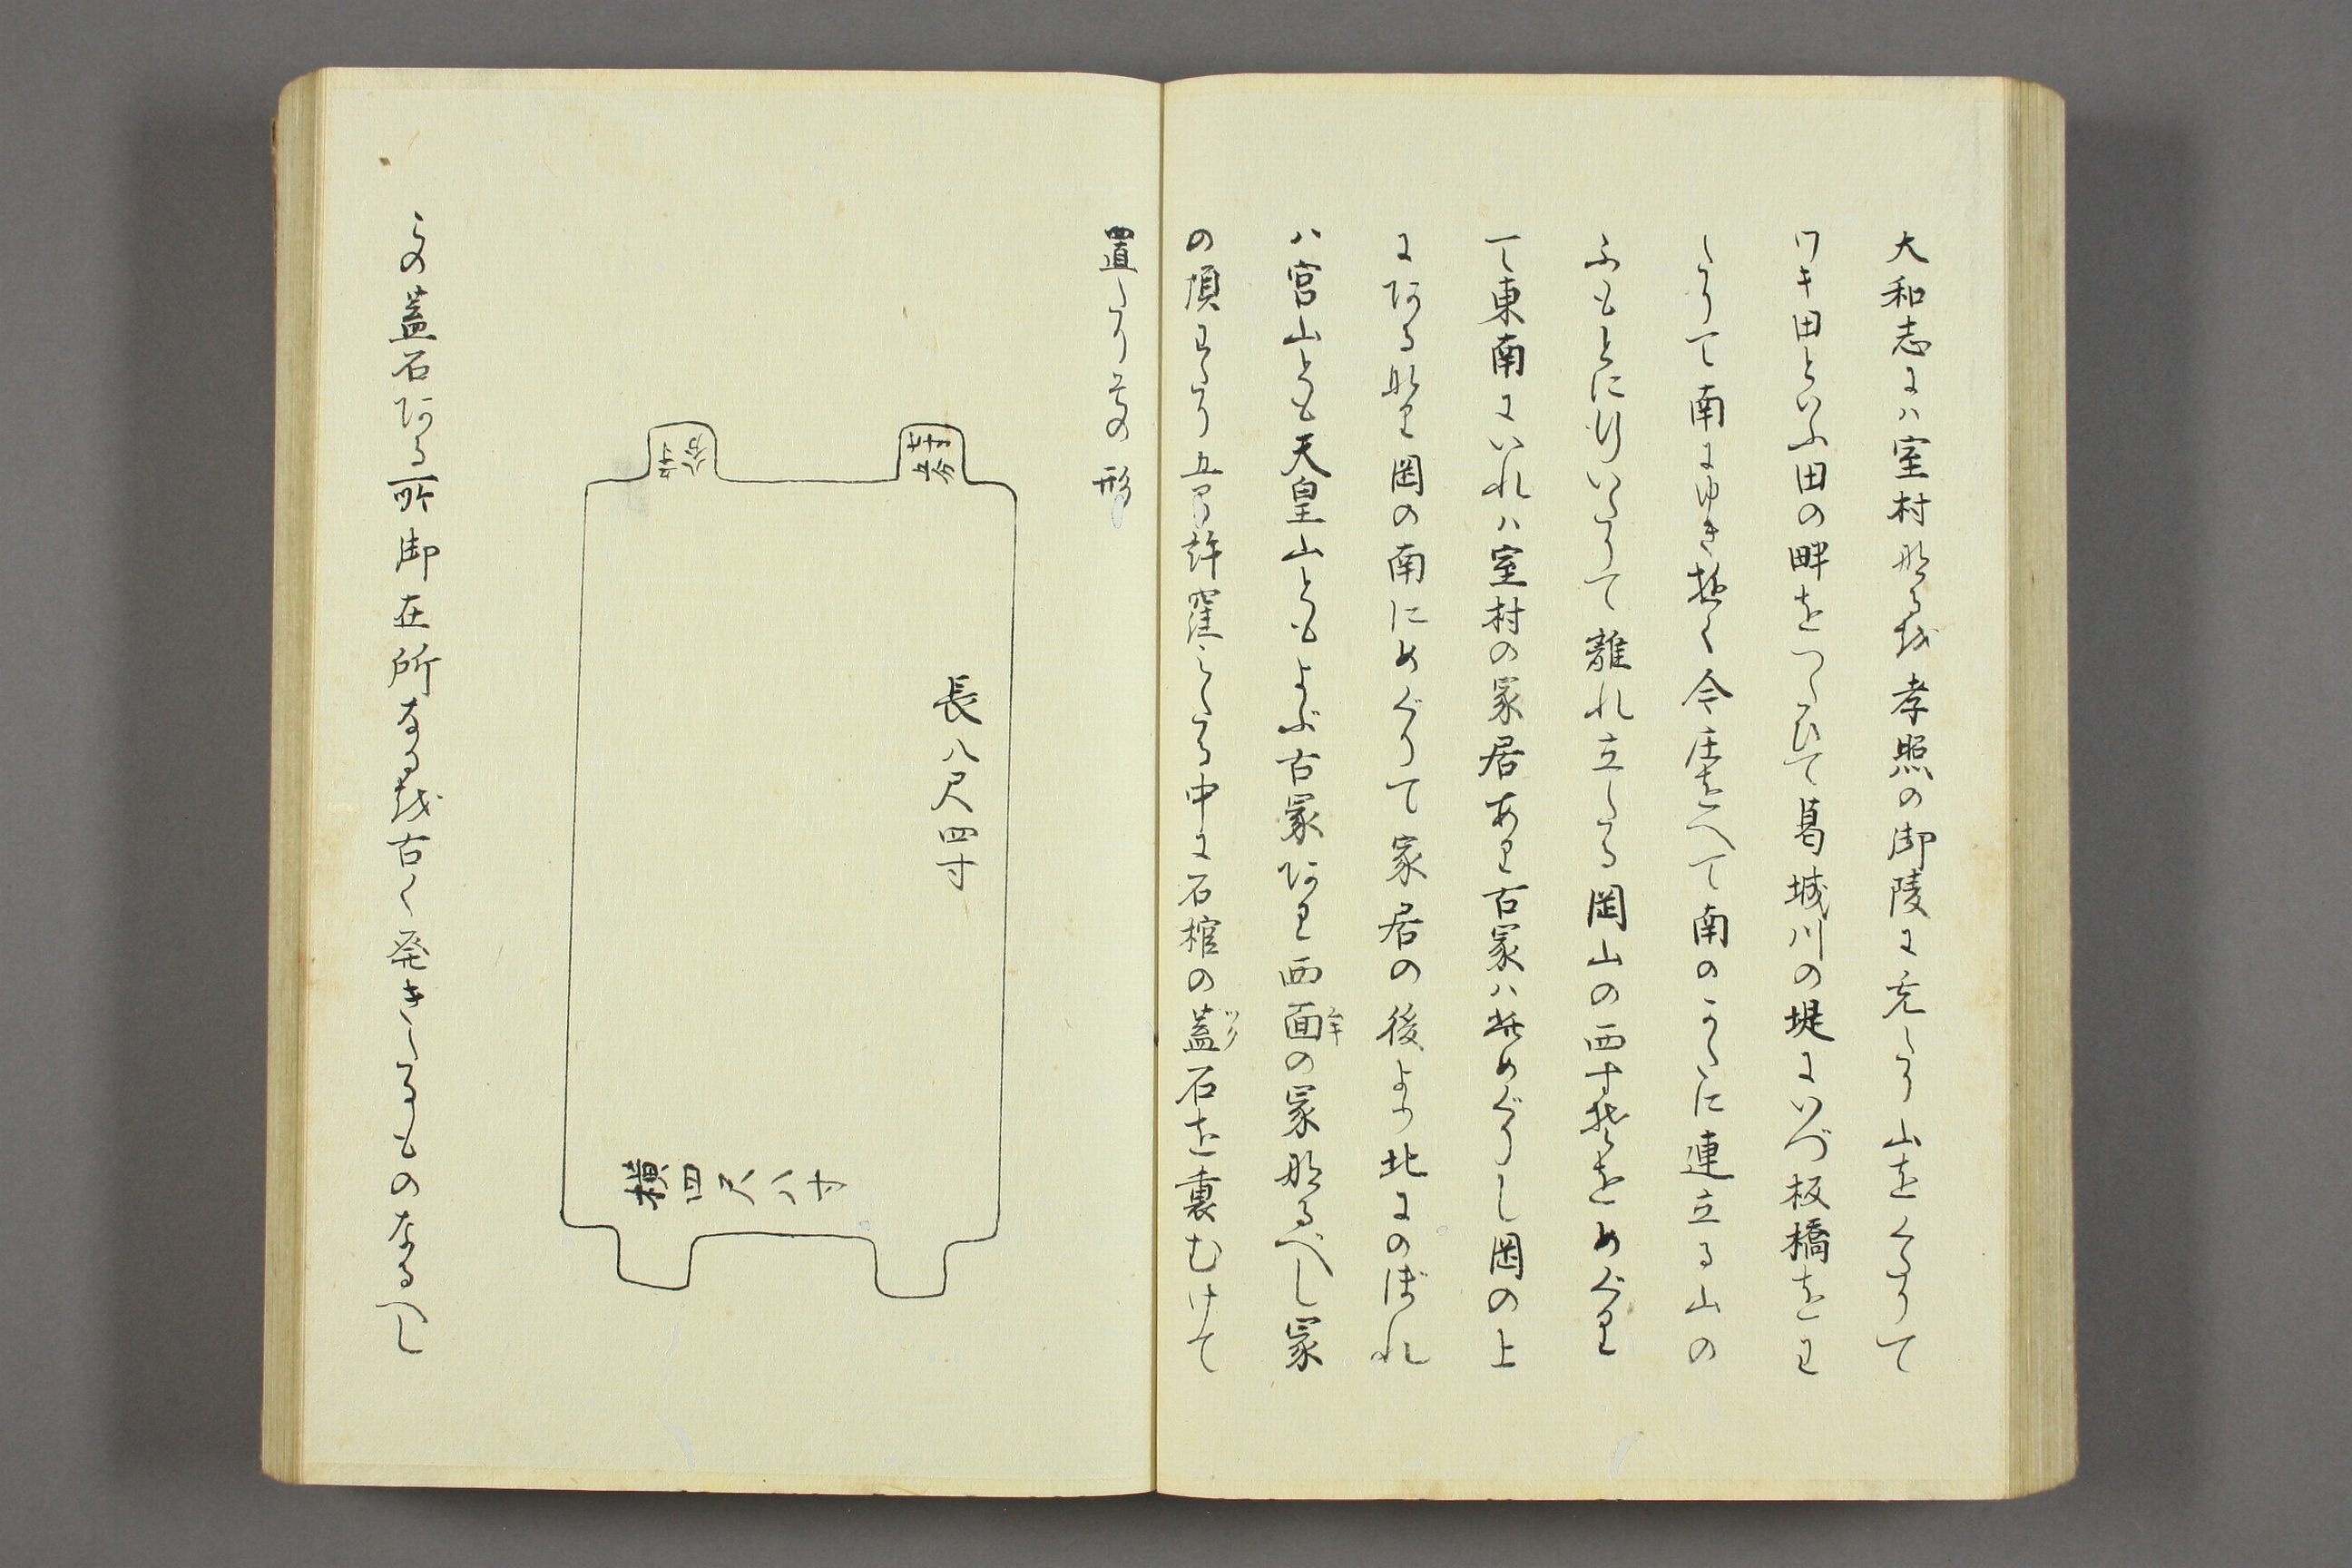 大和志にハ室村なるを孝照の御陵に充たり山をくだりて
ワキ田といふ田の畔をつたひて葛城川の堤にいづ板橋をわ
たりて南にゆき極く今庄をへて南のかたに連立る山の
ふもとに行いたりて離れ立たる岡山の西すそをめぐり
て東南にいれハ室村の家居あり古冢ハ此めぐりし岡の上
にある也岡の南にめぐりて家居の後より北にのぼれ
ハ宮山とも天皇山ともよぶ古冢あり西面の冢なるべし冢
の頂わたり五間許窪ミたる中に石棺の蓋石を裏むけて
置たり其の形
長八尺四寸
横四尺八寸
この蓋石ある所御在所なるを古く発きたるものなるへし